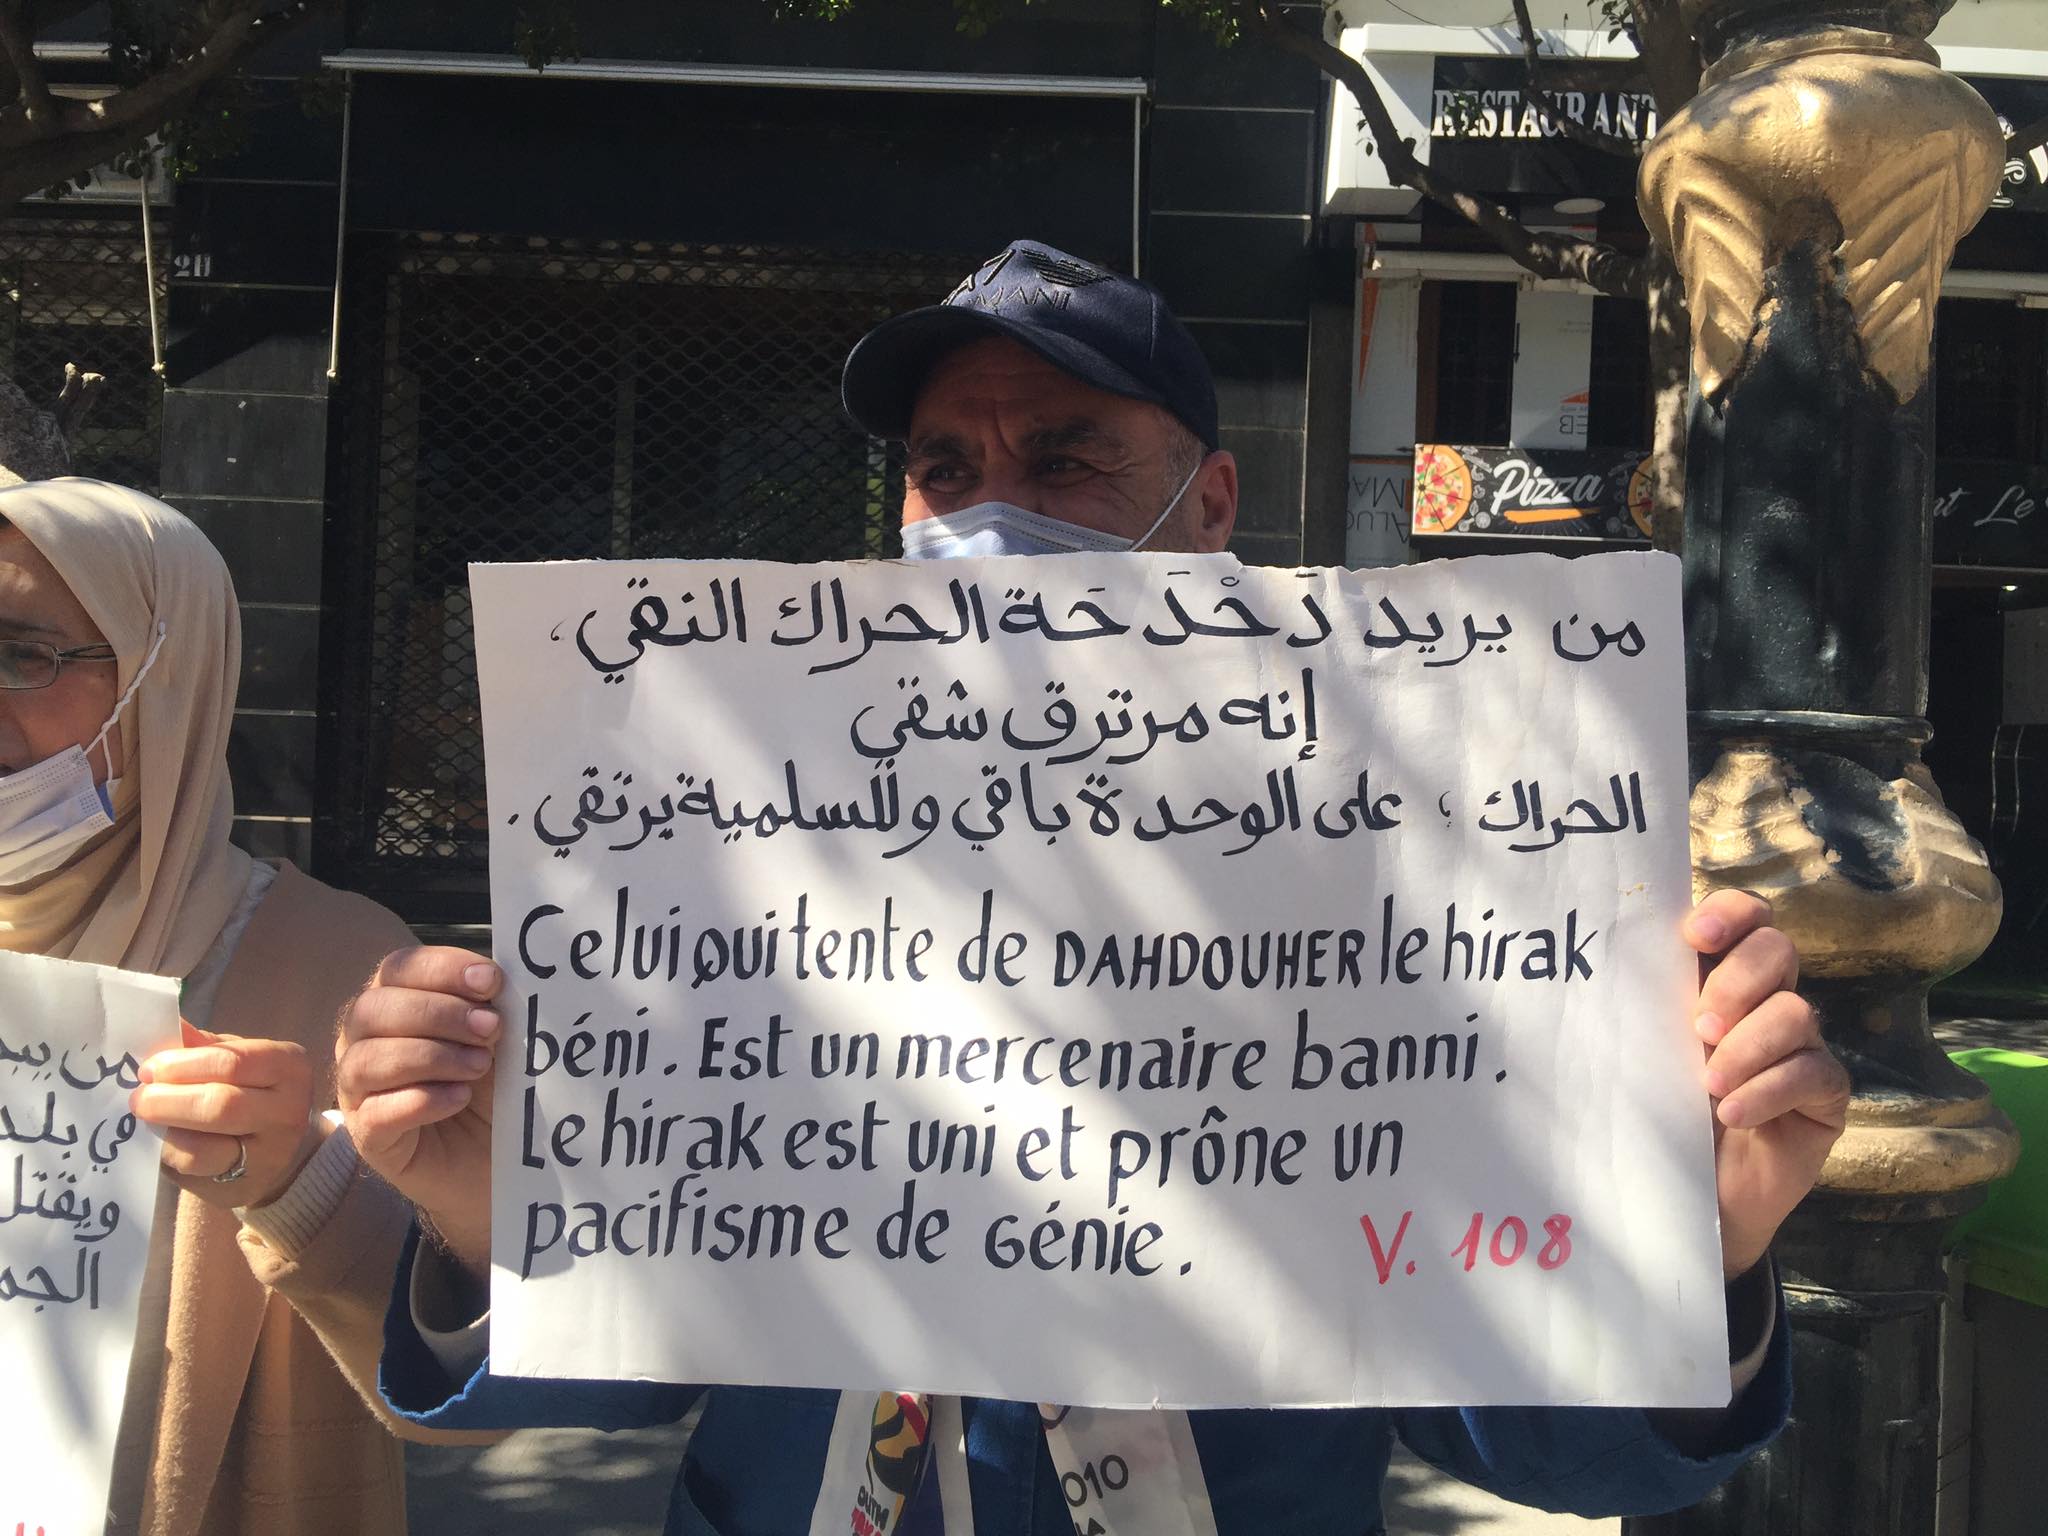 RESTAURANT
211
Pizza
من يريد دَحْدَحَة الحراك النقي،
إنه مرتزق شقي
الحراك؛ على الوحدة باقي وللسلمية يرتقي.
Celui qui tente de DAHDOUHER le hirak
béni. Est un mercenaire banni.
Le hirak est uni et prône un
pacifisme de Génie. V. 108
في بلد
ويقتل
الجم
010